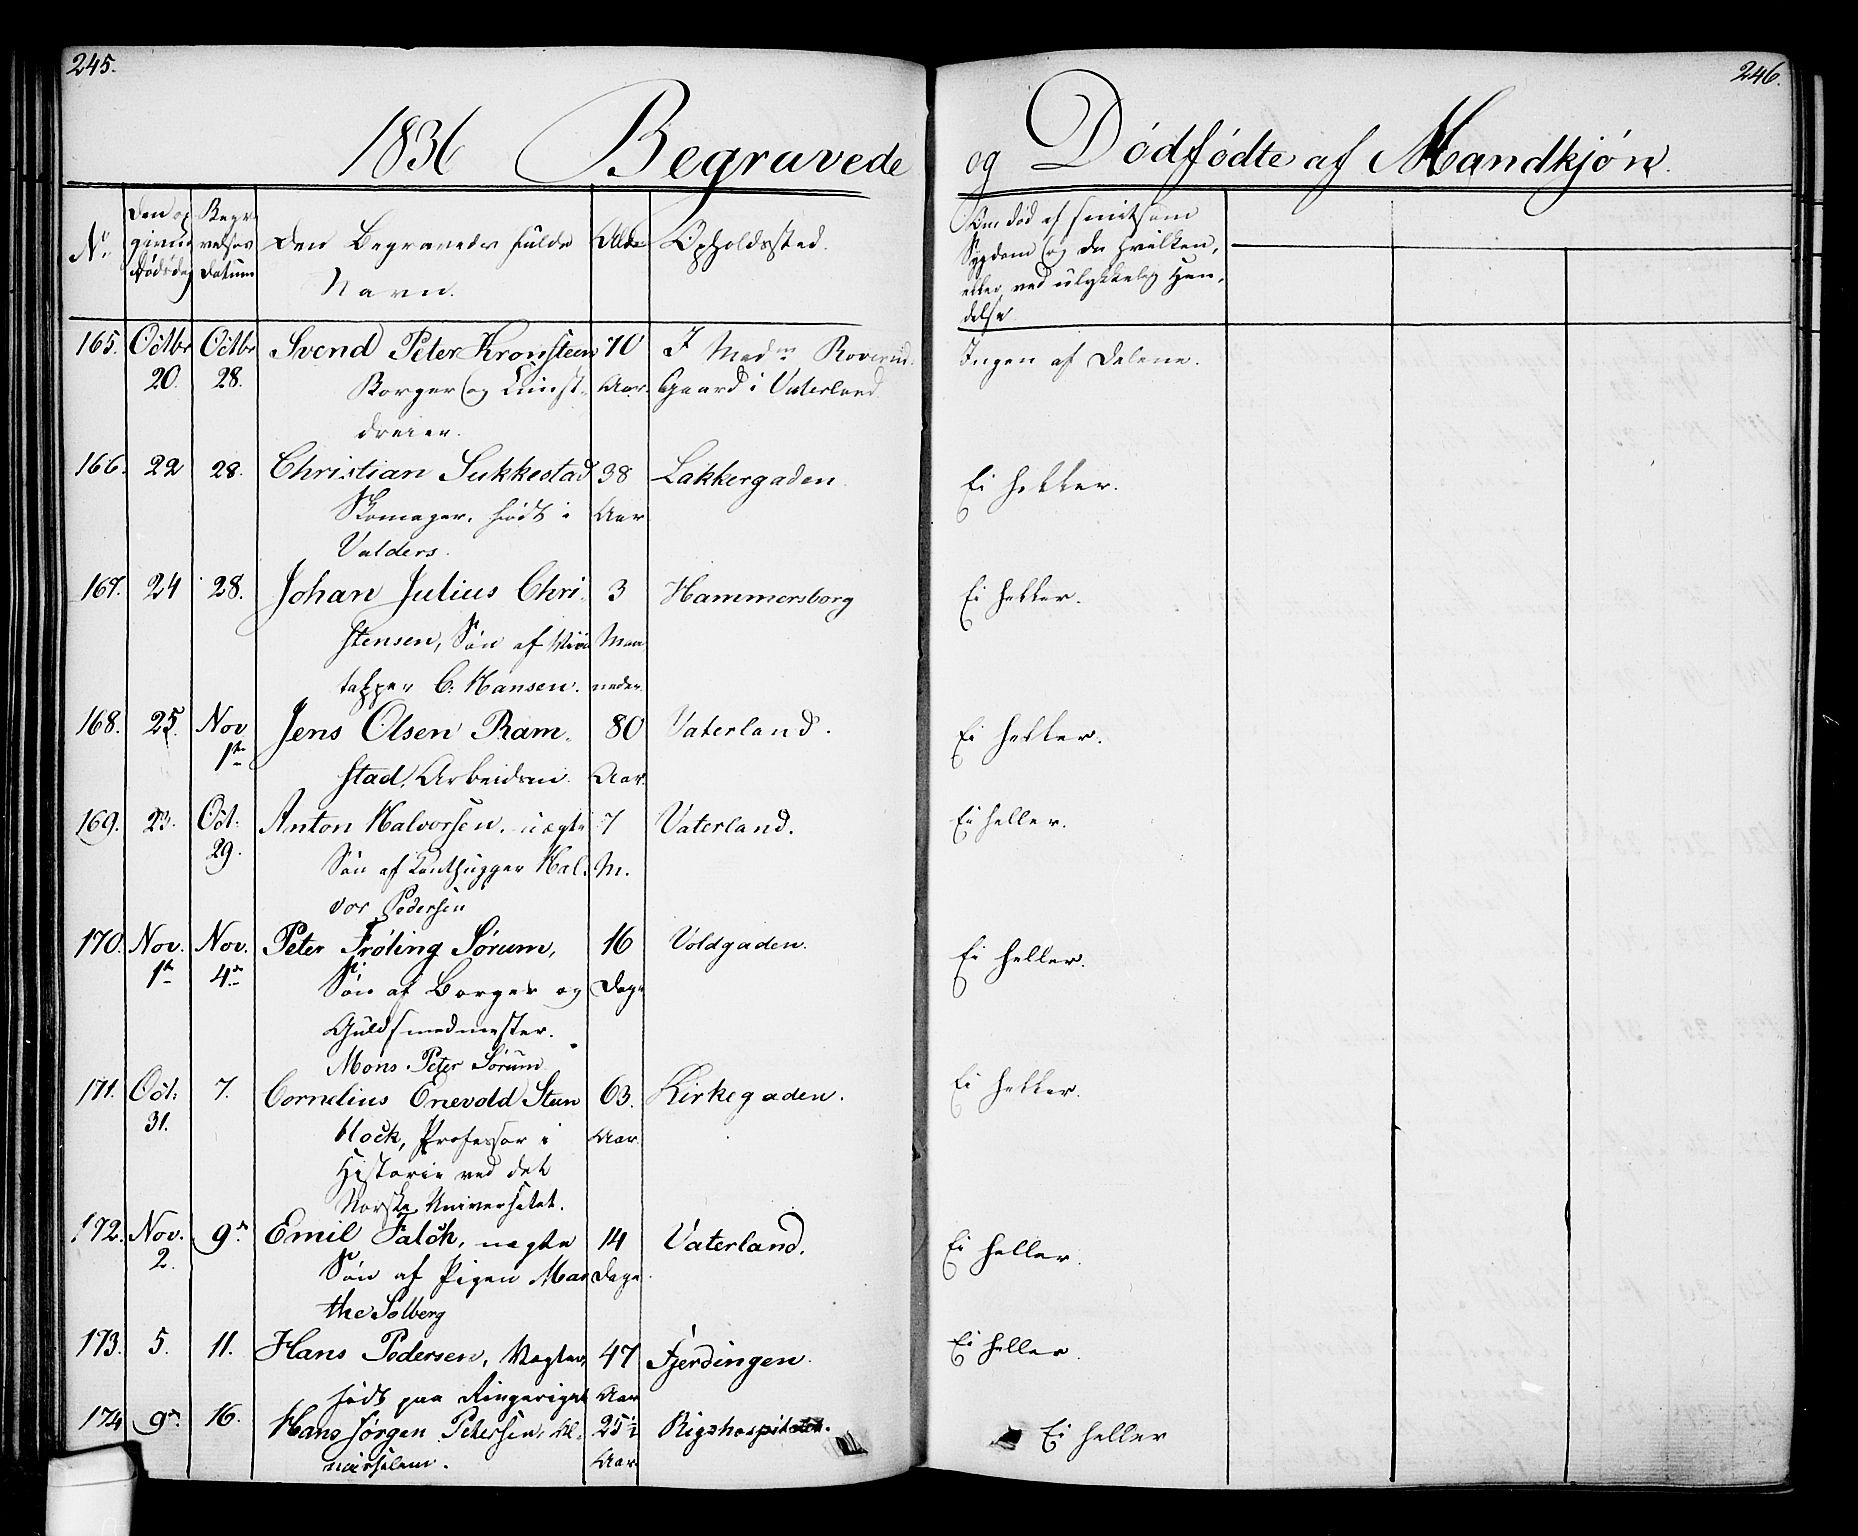 245.
1836 Begravede
No
Den op
givne
Dødsdag
Begra
velses
Datum
Den Begravedes fulde
Navn.
Alder
Opholdssted.
165.
Octbr
20.
Octbr
28.
Svend Peter Kronsteen
Borger og Kunst-
dreier.
70
Aar.
I Madm
Gaard i Vaterland
166.
22
28.
Christian Sukkestad
Skomager, født i
Valders.
38
Aar
Lakkergaden
167.
24
28.
Johan Julius Chri-
stensen, Søn af Viin
tapper C. Hansen.
3
Maa
neder.
Hammersborg
168.
25.
Nov
1te
Jens Olsen Ram-
stad, Arbeidsm.
80
Aar.
Vaterland.
169.
23.
Oct:
29.
Anton Halvorsen, uægte
Søn af Hal-
vor Pedersen
7
M.
Vaterland.
170.
Nov.
1te
Nov.
4de
Peter Frøling Sørum,
Søn af Borger og
Guldsmedmester
Mons Peter Sørum
16
Dage
Voldgaden.
171.
Oct:
31.
7.
Cornelius Enevold Steen
block, Professor i
Historie ved det
Norske Universitet.
63.
Aar
Kirkegaden.
172.
Nov.
2.
9de
Emil Falch, uægte
Søn af Pigen Mar
the Solberg
14
Dage
Vaterland.
173.
5.
11.
Hans Pedersen, Vægter,
født paa Ringeriget
47
Aar
Fjerdingen.
174
9de
16.
Hans Jørgen Petersen,
25½
Aar
Rigshospitalet.
246.
og Dødfødte af Mandkjøn.
Om død af smitsom
Sygdom og da hvilken,
eller ved ulykkelig Hæn-
delse
Ingen af Delene.
Ei heller.
Ei heller.
Ei heller.
Ei heller.
Ei heller.
Ei heller.
Ei heller.
Ei heller.
Ei heller